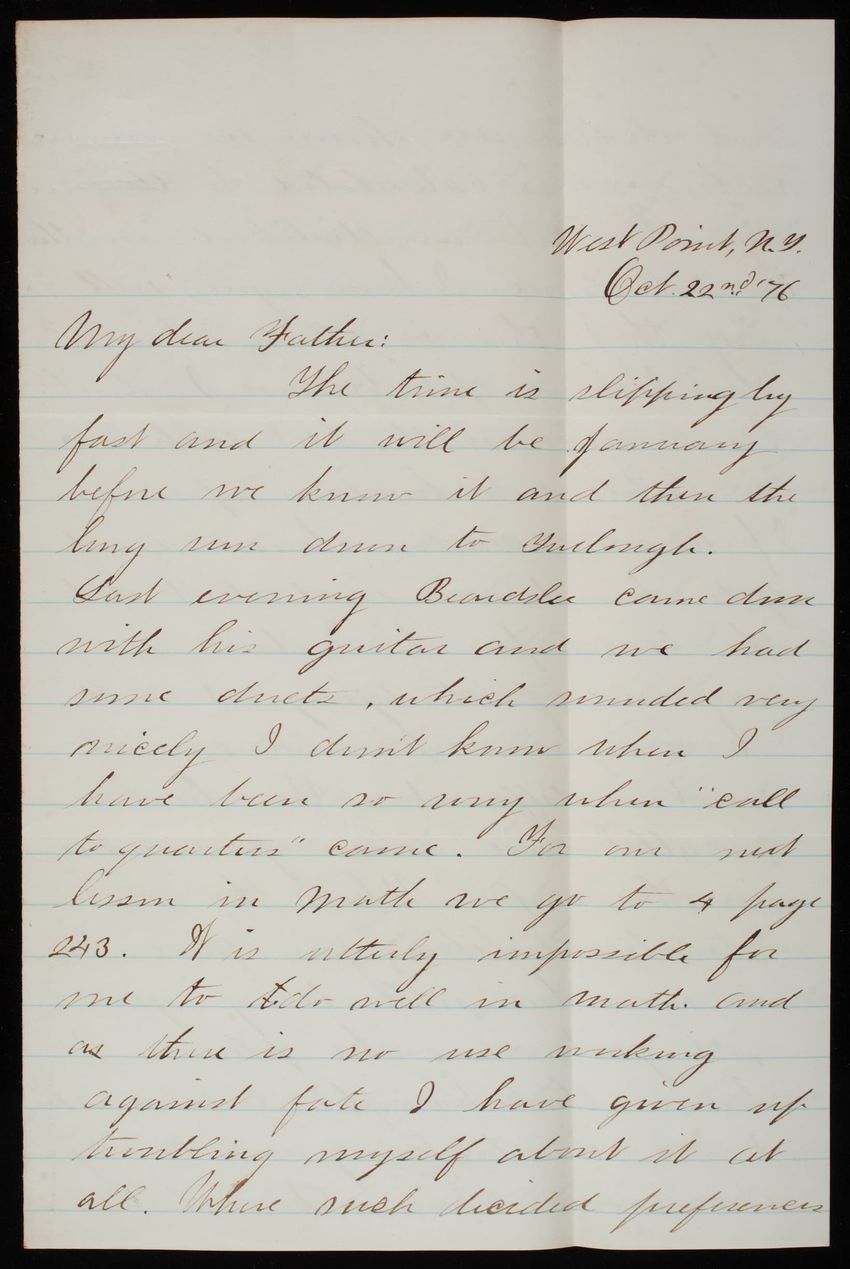 West Point, N.Y.
Oct. 22nd '76
My dear Father:
The time is slipping by
fast and it will be January
before we know it and then the
long run down to
Last evening Beardslee came down
with his guitar and we had
some duets, which sounded very
nicely I don't know when I
have been so sorry when "call
to quarters" came. For our next
lesson in Math we go to 4 page
243. It is utterly impossible for
me to do well in math. and
as there is no use working
against fate I have given up
troubling myself about it at
all. Where such decided preferences